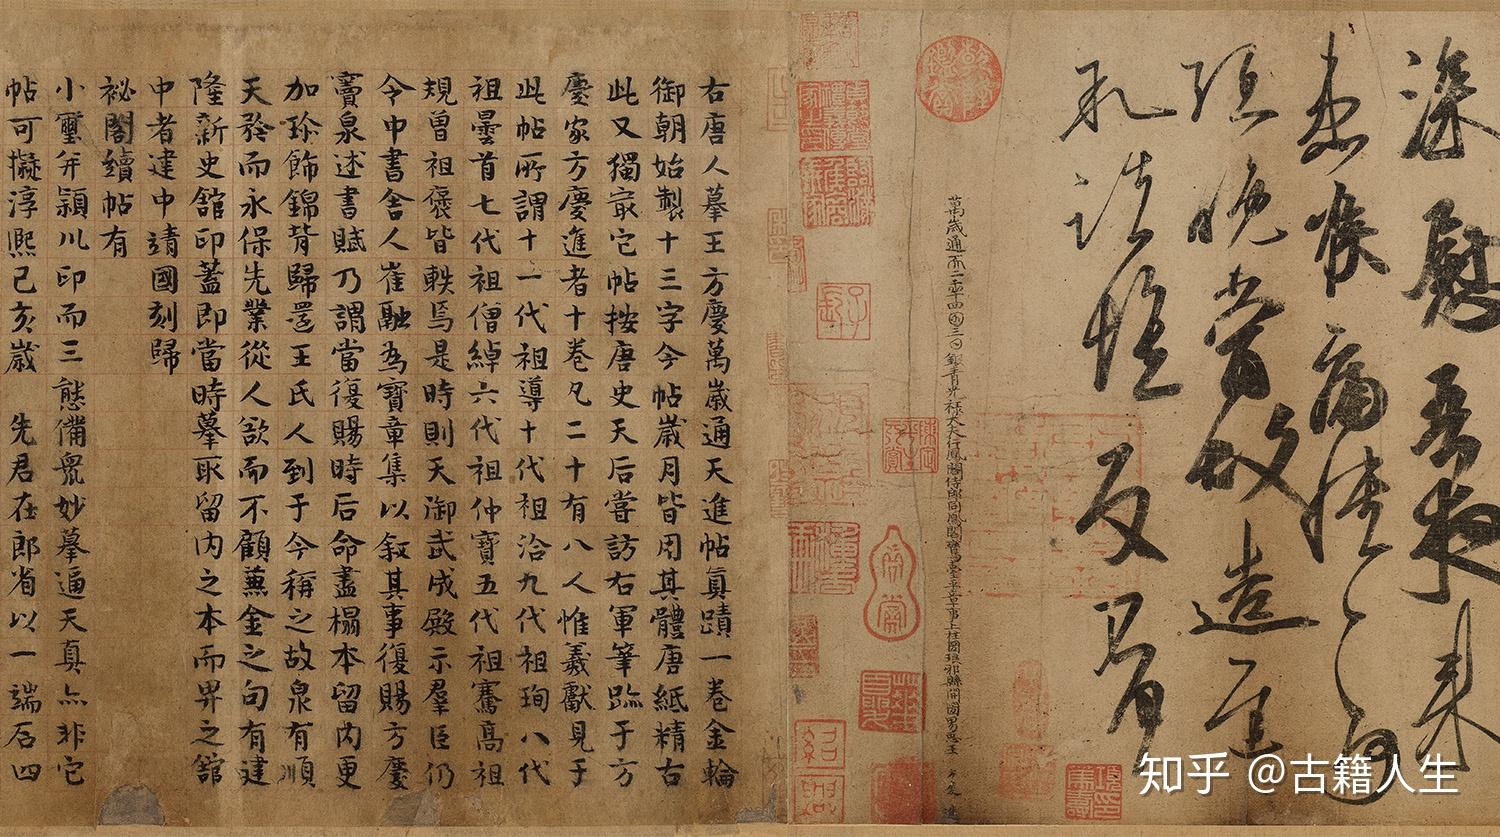 深慰吾夜來
患喉痛憒憒何
頊晚當故造遲
知諸惟反不具
萬歲通天二年四月三日銀青光祿大夫行鳳閣侍郎同鳳閣鸞臺平章事上柱國琅邪縣開國男臣王方慶進
右唐人摹王方慶萬歲通天進帖真蹟一卷金輪
御朝始製十三字今帖歲月皆用其體唐紙精古
此又獨最它帖按唐史天后嘗訪右軍筆跡于方
慶家方慶進者十卷凡二十有八人惟羲獻見于
此帖所謂十一代祖導十代祖洽九代祖珣八代
祖曇首七代祖僧綽六代祖仲寶五代祖騫高祖
規曾祖褒皆軼焉是時則天御武成殿示羣臣仍
令中書舍人崔融為寶章集以敘其事復賜方慶
竇泉述書賦乃謂當復賜時后命盡榻本留內更
加珍飾錦背歸還王氏人到于今稱之故泉有順
天矜而永保先業從人欲而不顧蒹金之句有建
隆新史館印蓋即當時摹取留內之本而畀之館
中者建中靖國刻歸
祕閣續帖有
小璽并潁川印而三態備眾妙摹逼天真亦非它
帖可擬淳熙己亥歲 先君在郎省以一端石四
知乎 @古籍人生